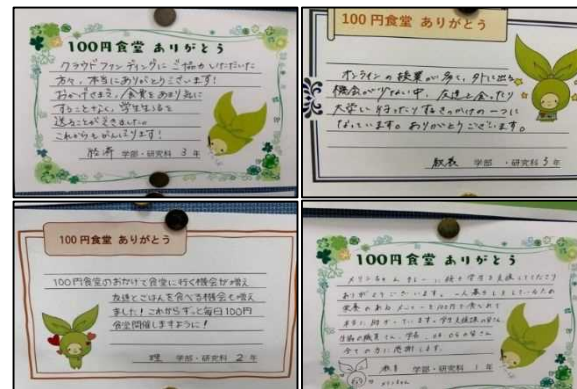 100円食堂 ありがとう
クラウドファンディングに ご協力いただいた
方々、本当にありがとうございます!
おかげさまで、食費をあまり気に
することなく、学生生活を
送ることができました。
これからもがんばります!
経済 学部・研究科 3 年
100円食堂 ありがとう
オンラインの授業が多く、外に出る
機会が少ない中、友達と会ったり
大学に行ったりするきっかけの一つに
なっています。ありがとうございます。
学部・研究科 3 年
100円食堂 ありがとう
100円食堂のおかげで食堂に行く機会が増え
友達とごはんを食べる機会も増え
ました!これからずっと毎日100円
食堂開催しますように!
理 学部・研究科 2 年
100円食堂 ありがとう
学生を支援してくださり
ありがとうございます。一人暮らしをしているため
栄養のあるメニューを100円で食べれて
本当に助かっています。学生支援課の皆さん
生協の職員さん、学長、
全ての方に感謝します。
教育 学部・研究科 1 年